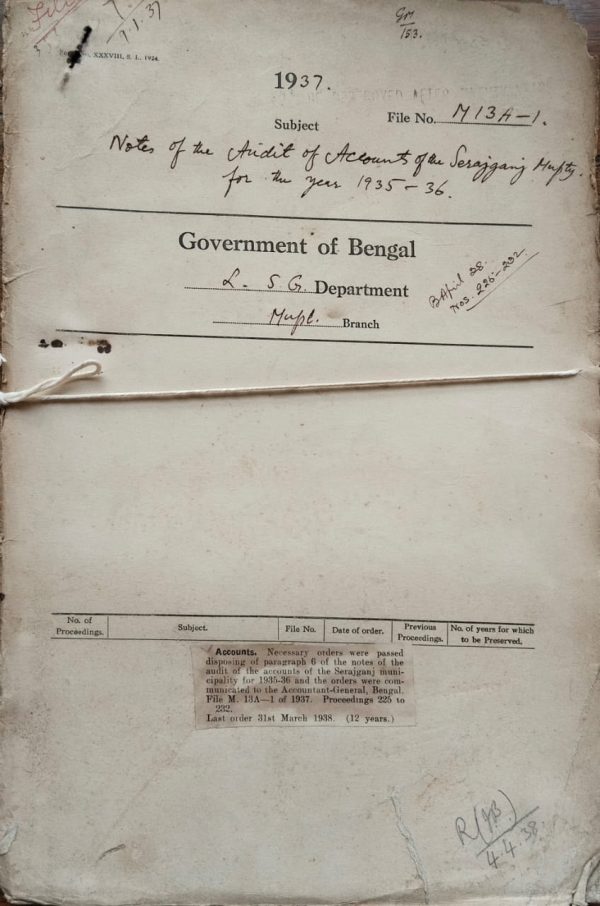 File
7.1.37
Gm
153.
XXXVIII, S. L., 1934.
1937.
Subject
File No. M 13A-1.
Notes of the Audit of Accounts of the Serajganj Mupty.
for the year 1935-36.
Government of Bengal
L. S. G. Department
B April 38.
Nos. 225-232
Mupl. Branch
No. of Proceedings.
Subject.
File No.
Date of order.
Previous Proceedings.
No. of years for which to be Preserved.
Accounts. Necessary orders were passed
disposing of paragraph 6 of the notes of the
audit of the accounts of the Serajganj muni-
cipality for 1935-36 and the orders were com-
municated to the Accountant-General, Bengal.
File M. 13A—1 of 1937. Proceedings 225 to
232.
Last order 31st March 1938. (12 years.)
R(JB)
4.4.38